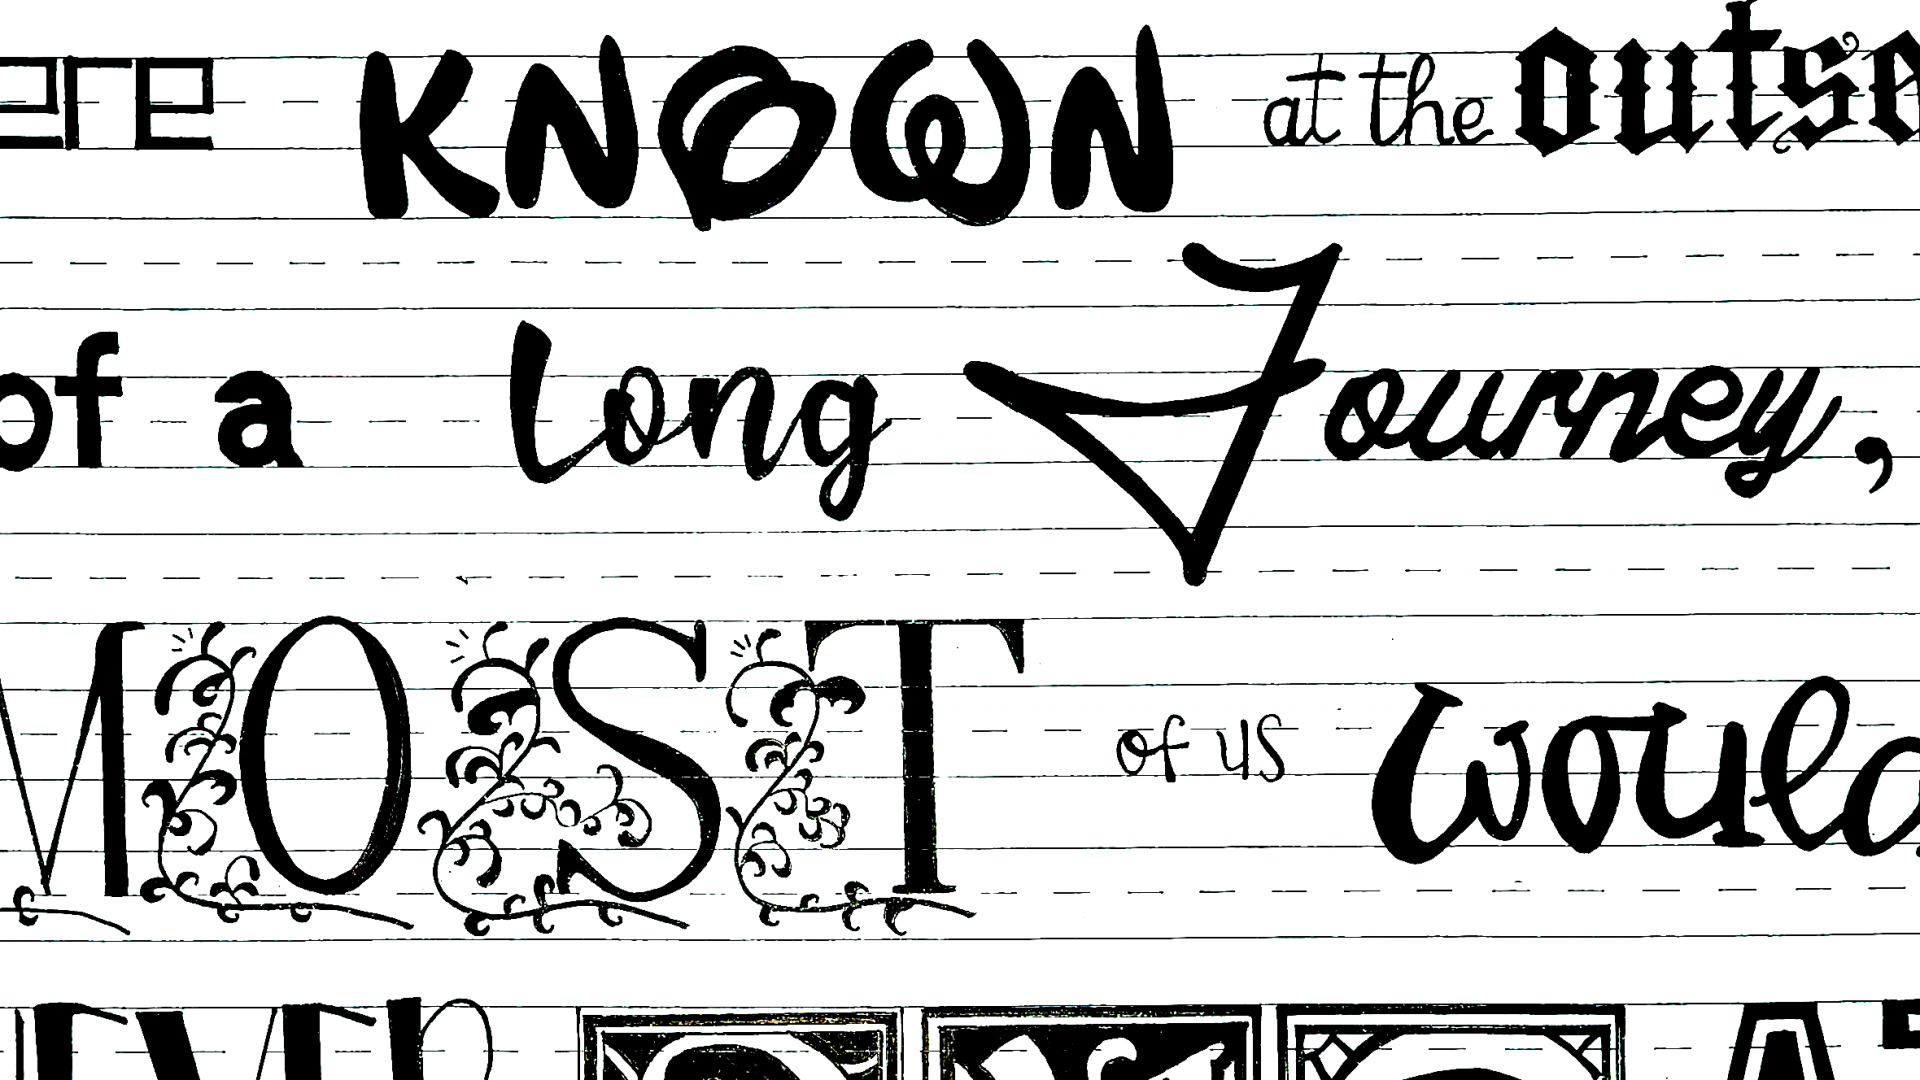 ere KNOWN at the outse
of a long Journey,
MOST of us would